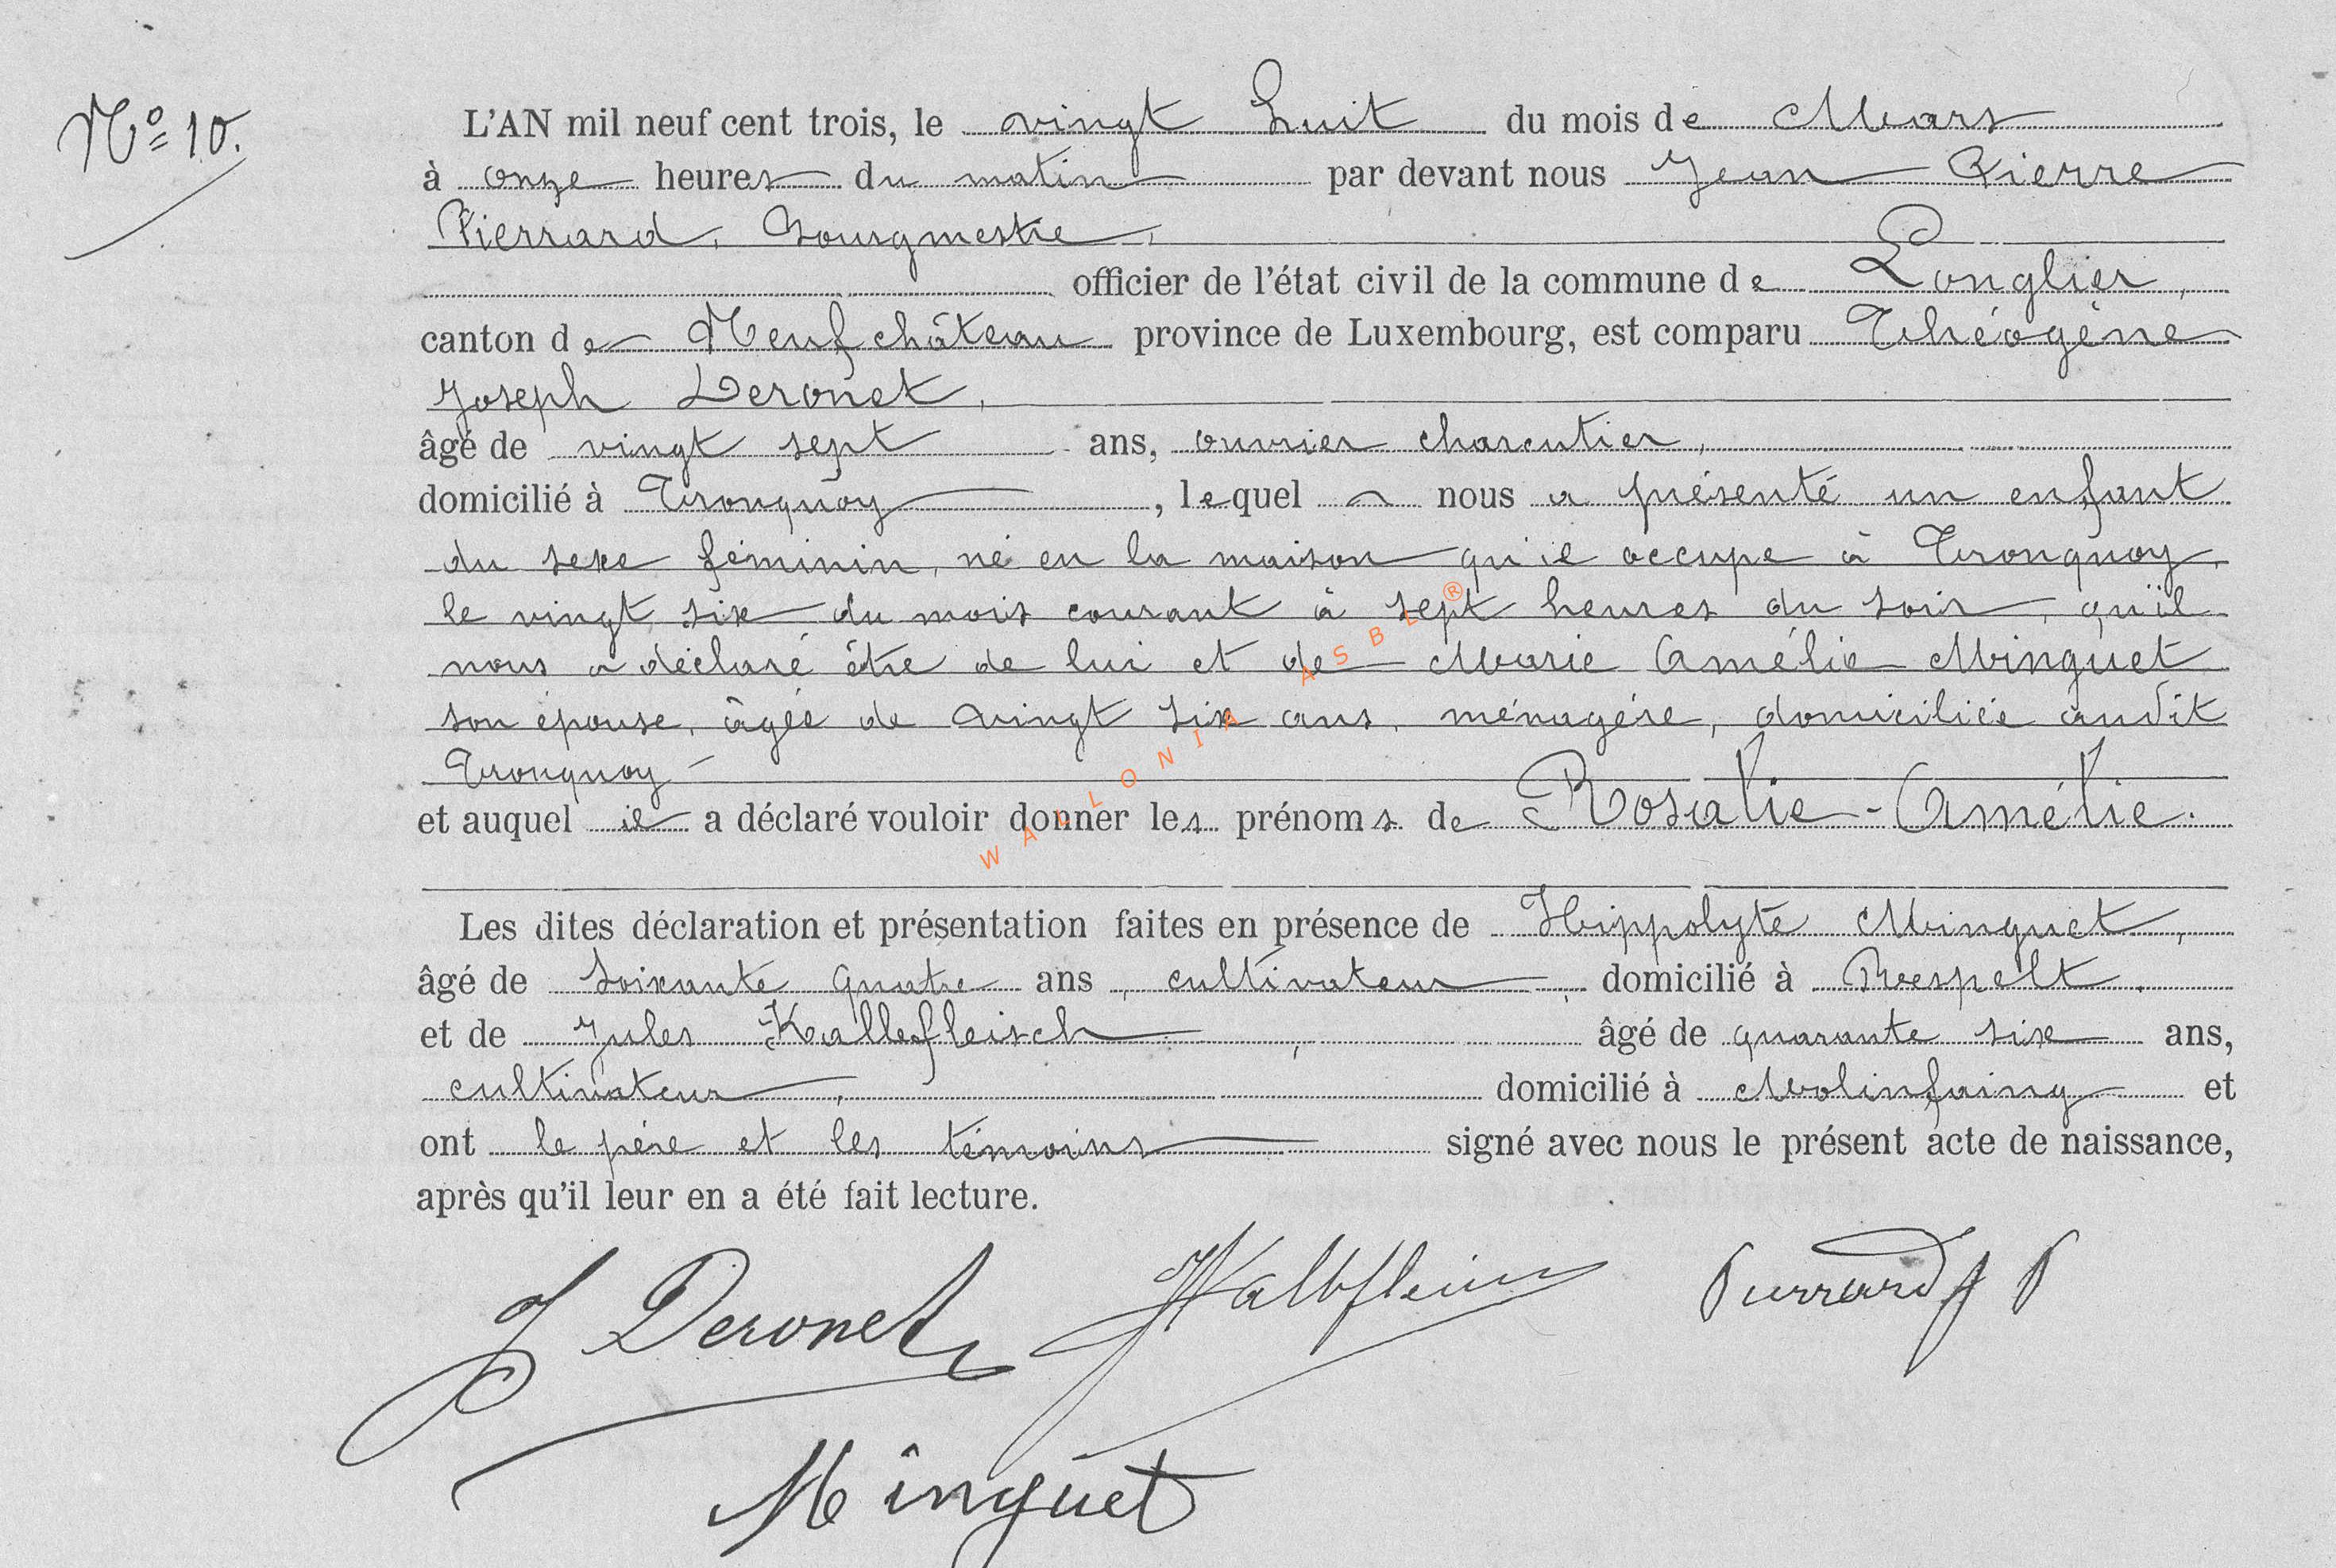 N° 10.
L'AN mil neuf cent trois, le vingt huit du mois de Mars
à onze heures du matin par devant nous Jean Pierre
Pierrard, Bourgmestre,
officier de l'état civil de la commune de Longlier,
canton de Neufchâteau province de Luxembourg, est comparu Théogène
Joseph Deronet,
âgé de vingt sept ans, ouvrier charcutier,
domicilié à Tronquoy, lequel nous a présenté un enfant
du sexe féminin, né en la maison qu'il occupe à Tronquoy,
le vingt six du mois courant à sept heures du soir, qu'il
nous a déclaré être de lui et de Marie Amélie Minguet
son épouse, âgée de vingt six ans, ménagère, domiciliée audit
Tronquoy
et auquel il a déclaré vouloir donner les prénoms de Rosalie-Amélie.
Les dites déclaration et présentation faites en présence de Hippolyte Minguet,
âgé de soixante quatre ans, cultivateur, domicilié à Respelt.
et de Jules Kallefleisch, âgé de quarante six ans,
cultivateur, domicilié à Molinfaing et
ont le père et les témoins signé avec nous le présent acte de naissance,
après qu'il leur en a été fait lecture.
J Deronet Pierrard J P
Minguet
WALLONIA ASBL ®